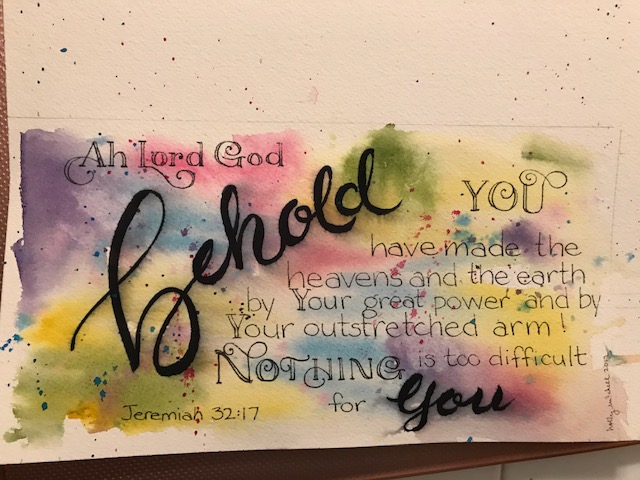 Ah Lord God
behold
YOU
have made the
heavens and the earth
by Your great power and by
Your outstretched arm!
NOTHING is too difficult
for you
Jeremiah 32:17